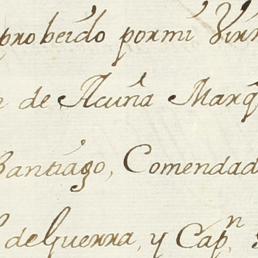 probeido por mi Virr
e de Acuña Marq
Santiago, Comendad
de Guerra, y Cap.n